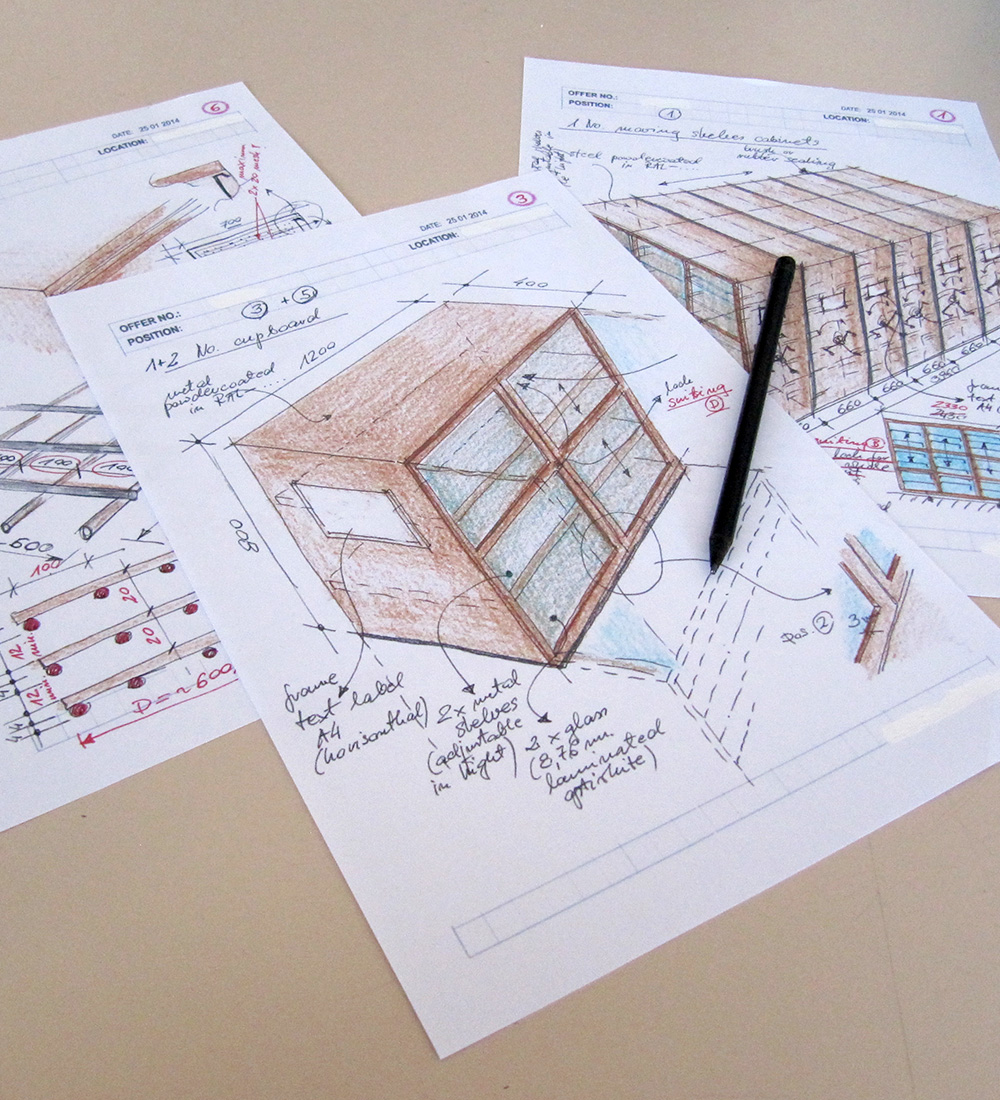 6
DATE: 25 01 2014
LOCATION:
700
100
600
100
20
20
12
min.
12
min.
D = ~600
OFFER NO.:
POSITION:
1
1
DATE: 25 01 2014
LOCATION:
1 No. mooving shelves cabinets
steel powdercoated
in RAL-....
brush or
rubber sealing
660
660
660
2330
2430
B
3
DATE: 25 01 2014
LOCATION:
OFFER NO.:
POSITION:
3 + 5
1+2 No. cupboard
metal
powdercoated
in RAL-....
1200
400
800
lock
D
Pos. 2
3
frame
text label
A4
(horisonthal)
2 x metal
shelves
(adjustable
in hight)
2 x glass
(8,76 mm.
laminated